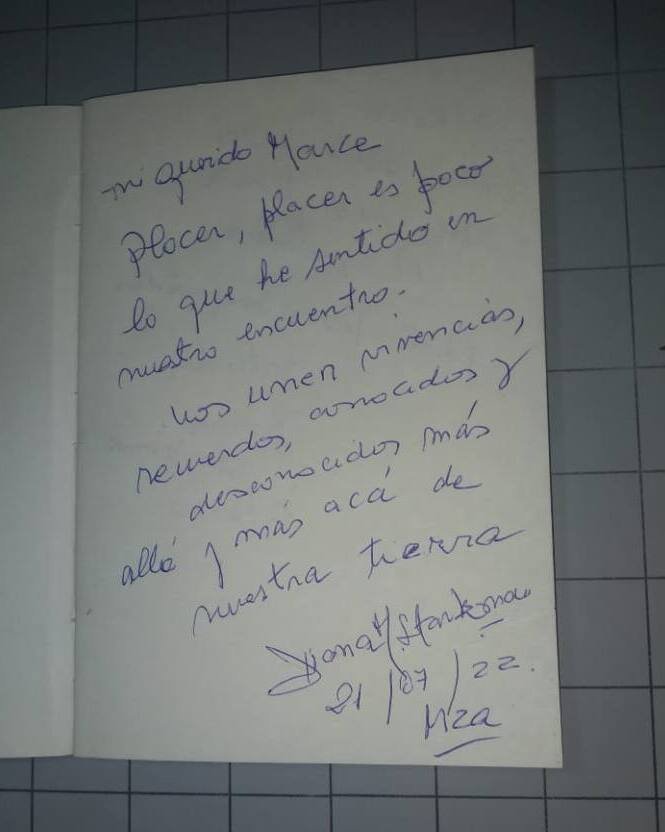 mi querido Marce
Placer, placer es poco
lo que he sentido en
nuestro encuentro.
nos unen vivencias,
recuerdos, conocidos y
desconocidos más
allá y más acá de
nuestra tierra
Diana H Starkman
21/07/22.
Mza